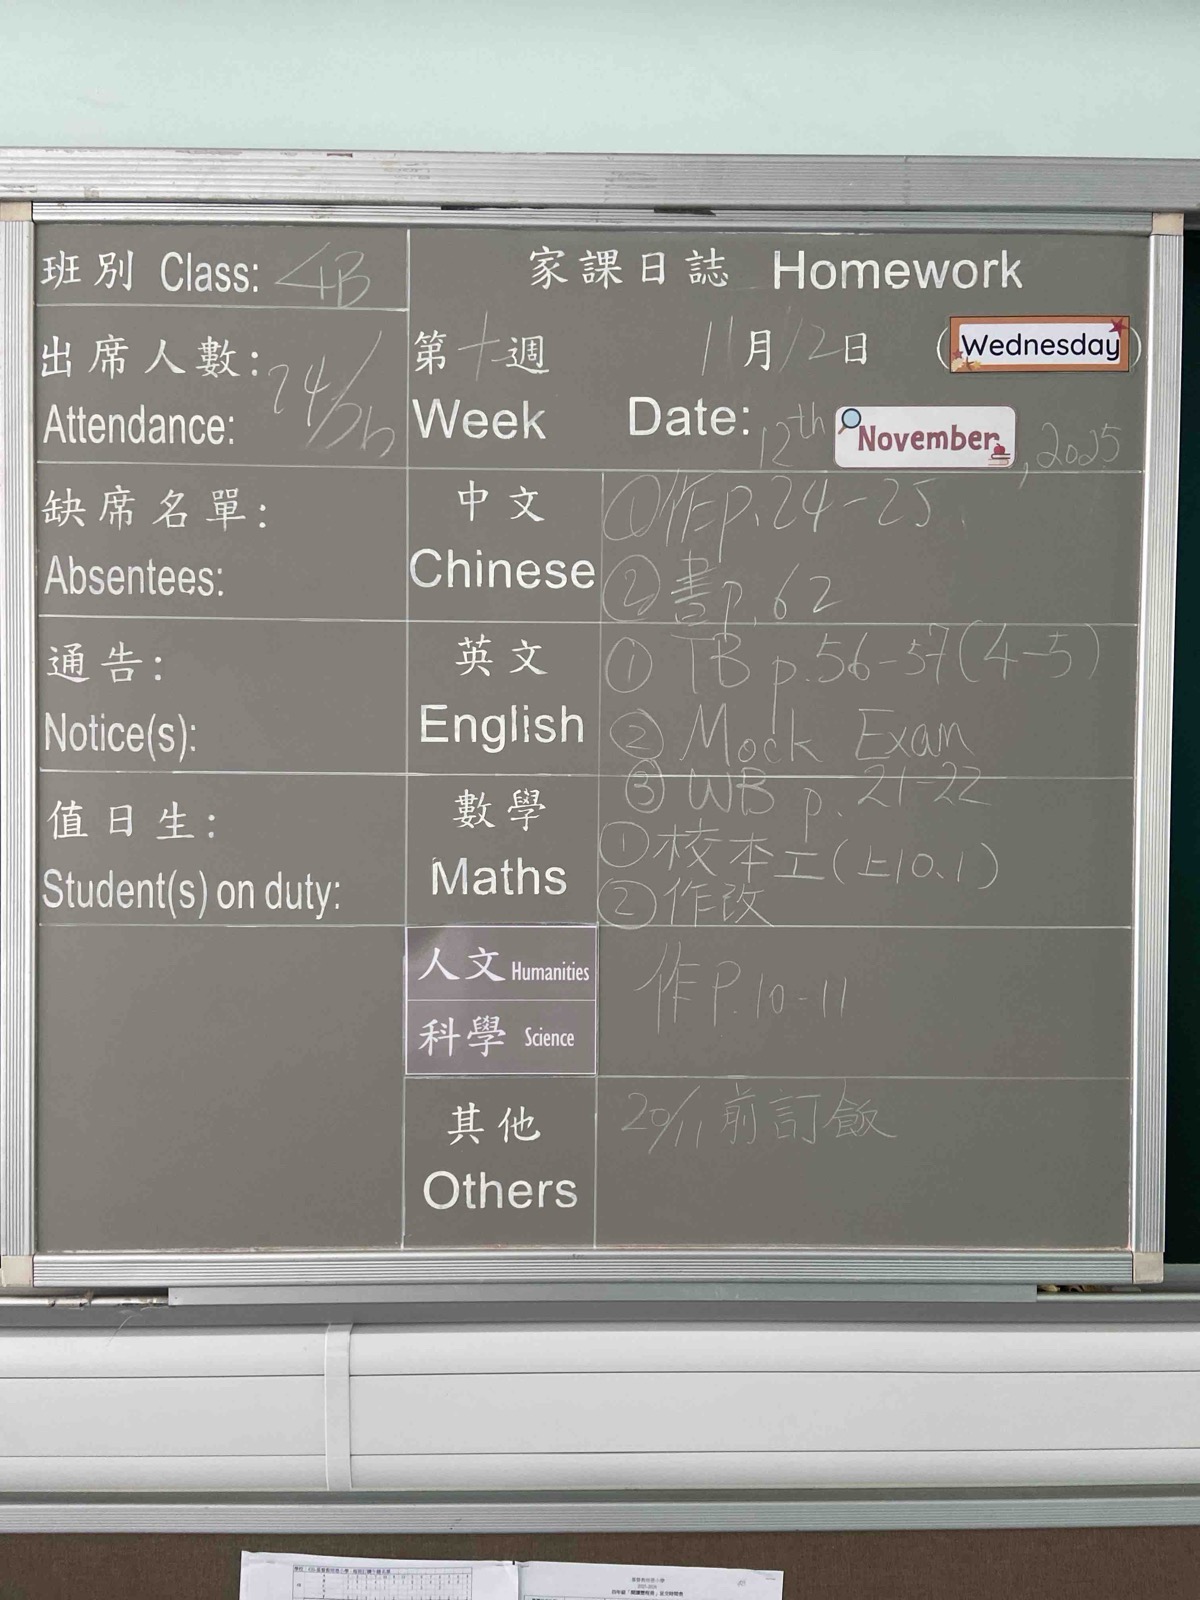 班別 Class: 4B
家課日誌 Homework
出席人數:
Attendance: 24/26
第十週 11月12日 (Wednesday)
Week Date: 12th November, 2025
缺席名單:
Absentees:
中文
Chinese
①作p.24-25.
②書p.62
通告:
Notice(s):
英文
English
① TB p.56-57(4-5)
② Mock Exam
③ WB p. 21-22
值日生:
Student(s) on duty:
數學
Maths
①校本工(上10.1)
②作改
人文 Humanities
科學 Science
作P.10-11
其他
Others
20/11前訂飯